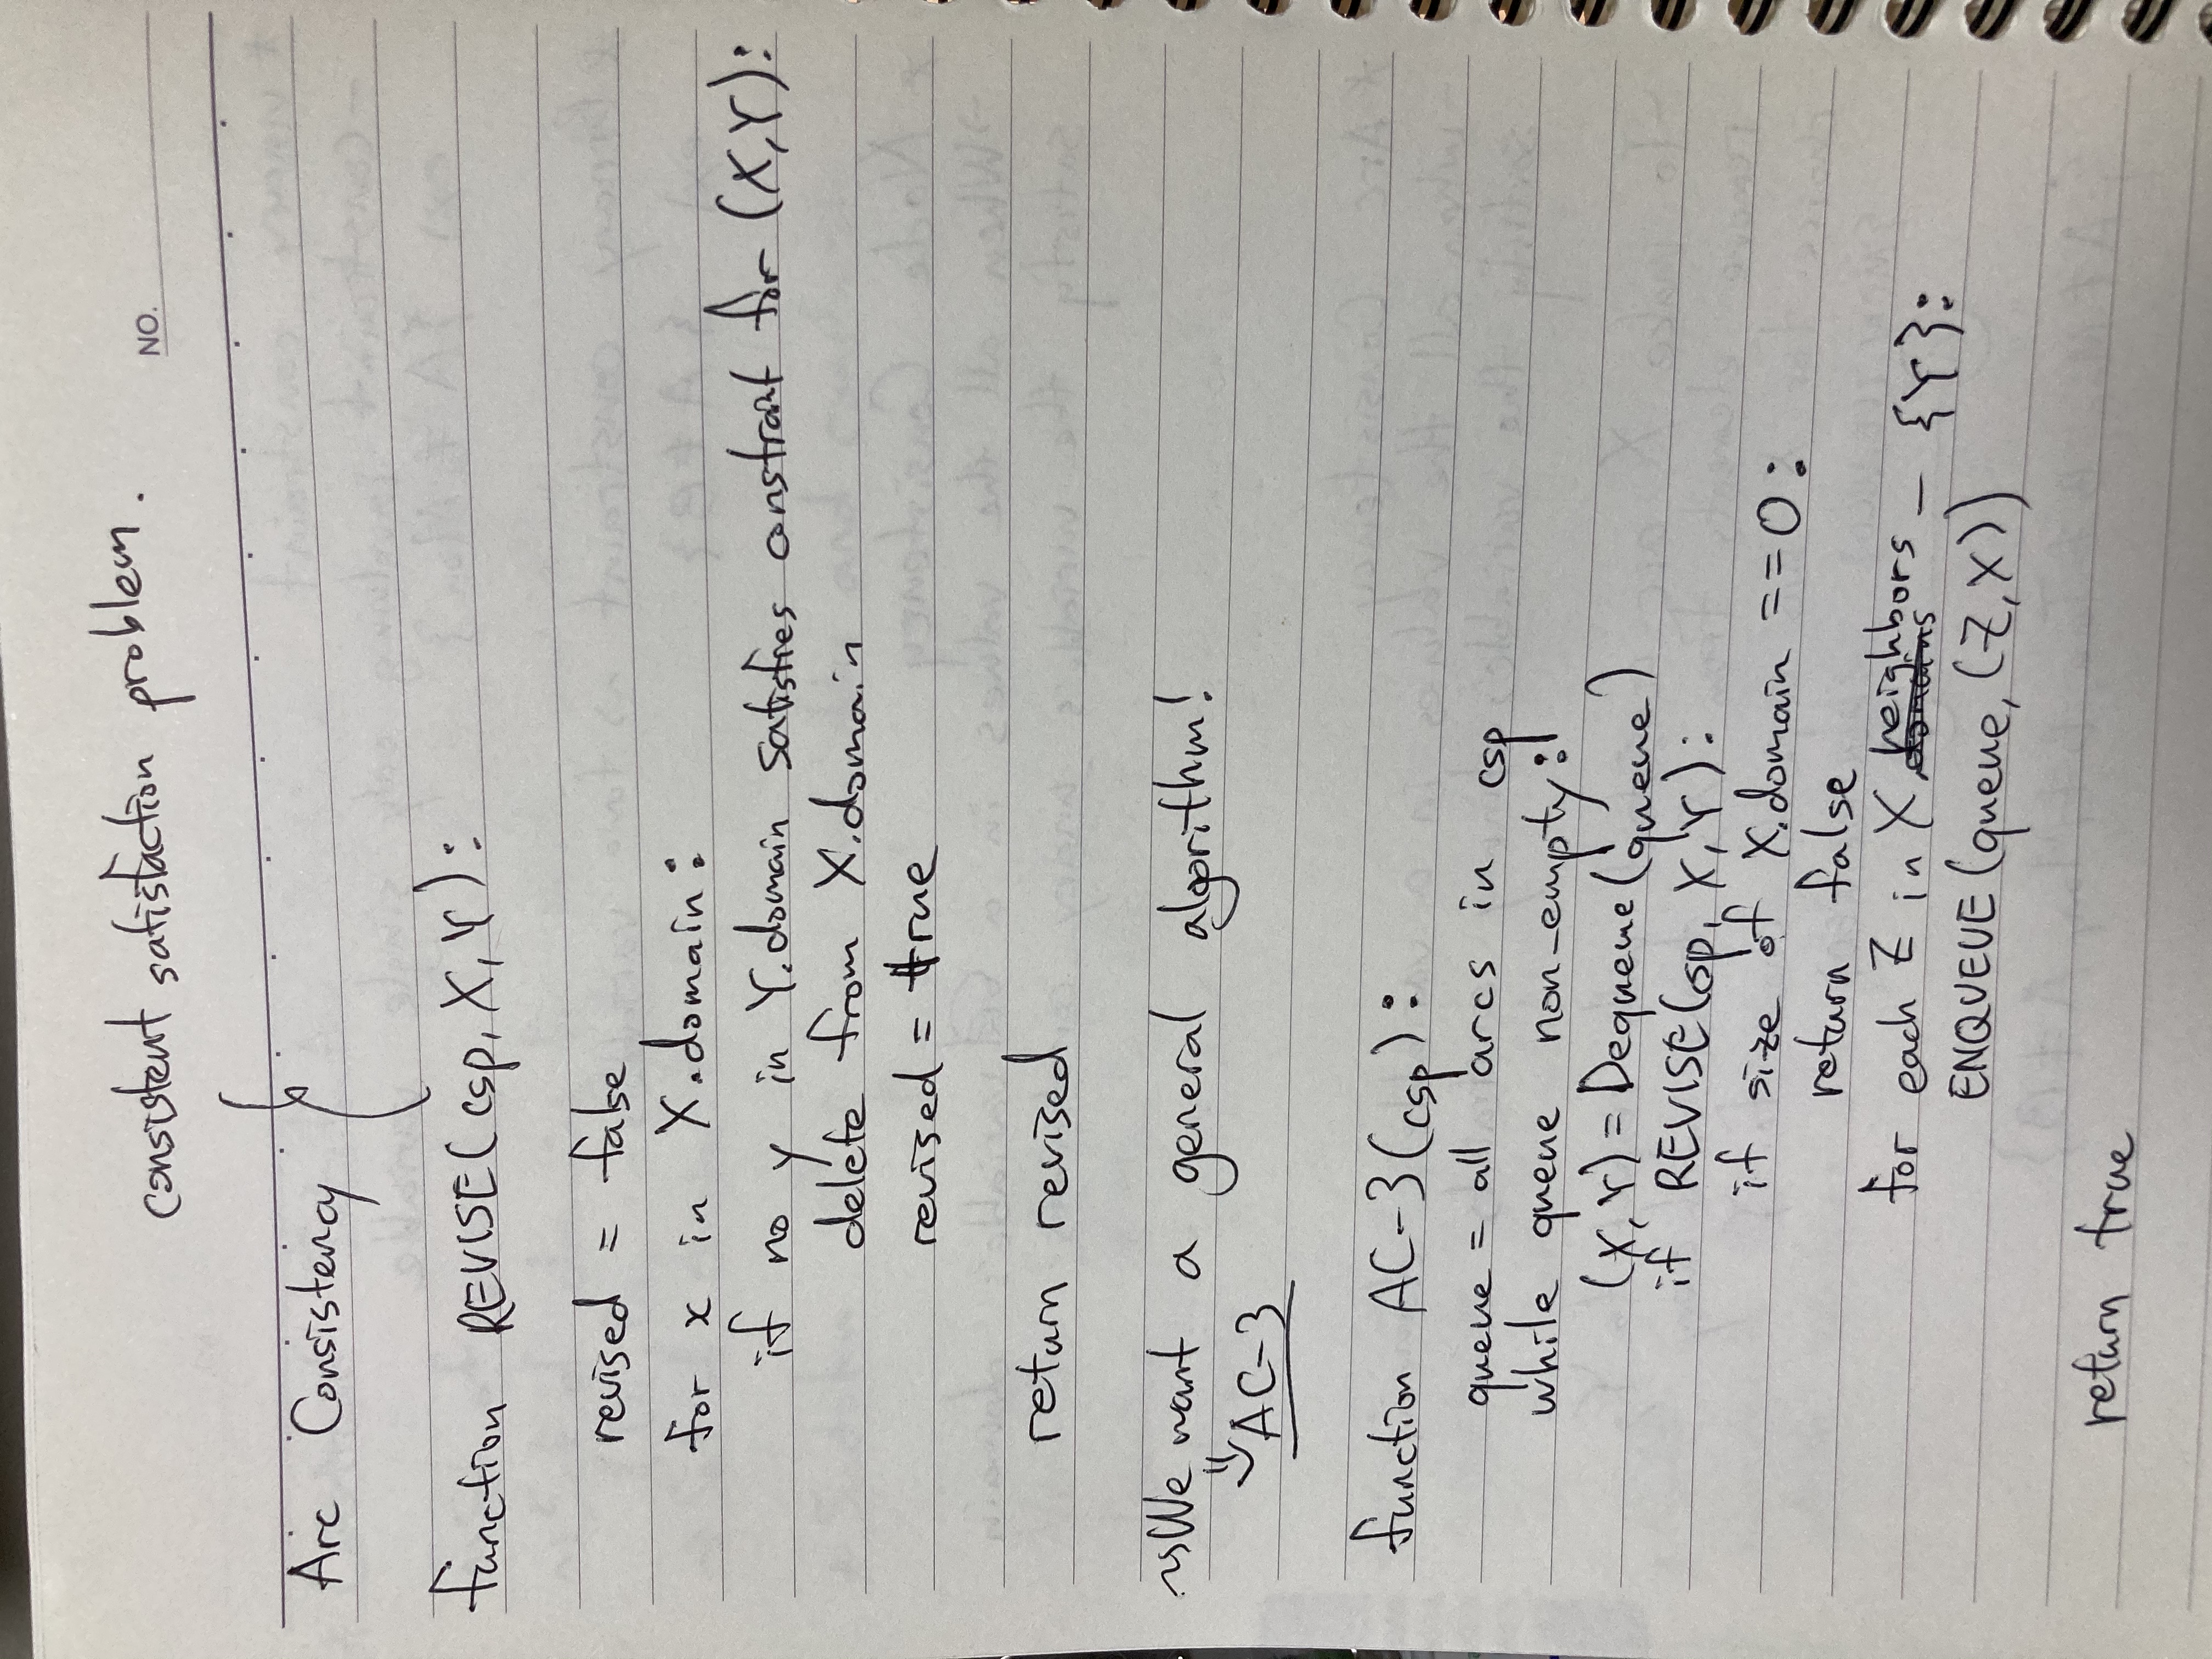 consistent satisfaction problem.
NO.
Arc Consistency
function REVISE(csp, X, Y):
revised = false
for x in X.domain:
if no y in Y.domain satisfies constraint for (X,Y):
delete from X.domain
revised = true
return revised
We want a general algorithm!
AC-3
function AC-3(csp):
queue = all arcs in csp
while queue non-empty:
(X, Y) = Dequeue(queue)
if REVISE(csp, X, Y):
if size of X.domain == 0:
return false
for each Z in X.neighbors - {Y}:
ENQUEUE(queue, (Z,X))
return true